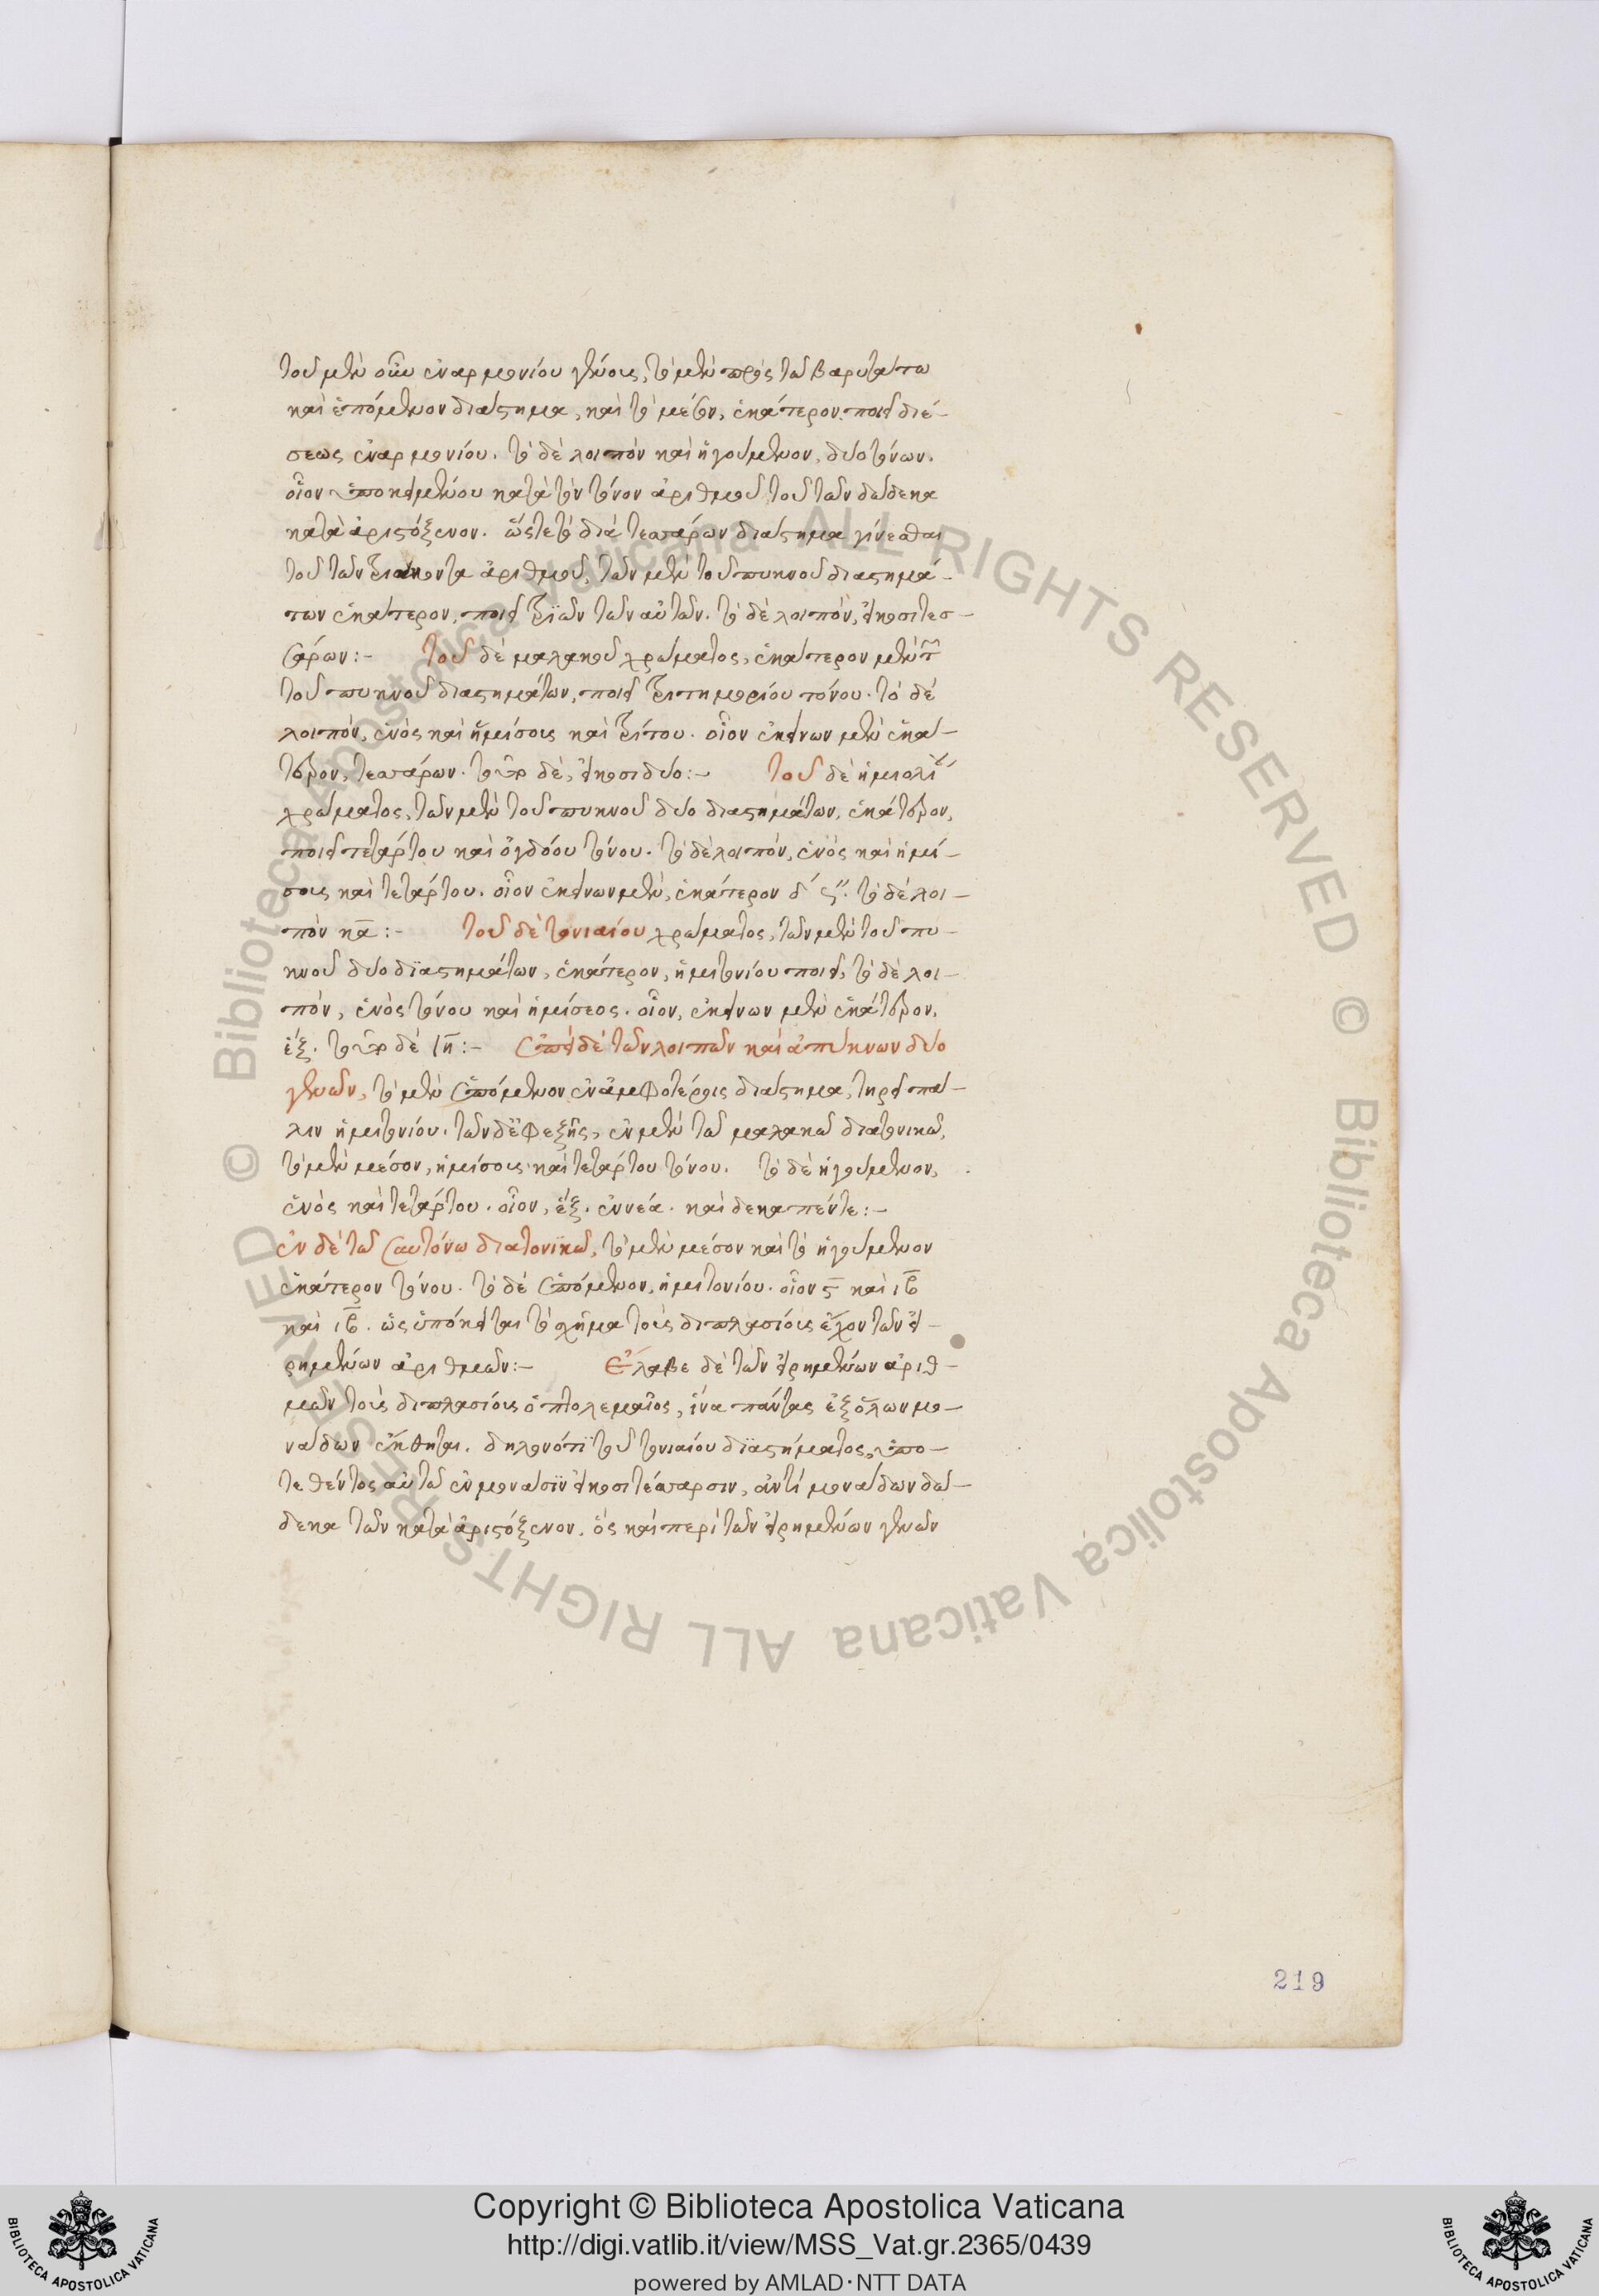 τοῦ μὲν οὖν ἐναρμονίου γένους, τὸ μὲν πρὸς τῶ βαρυτάτω
καὶ ἑπόμενον διάστημα, καὶ τὸ μέσον, ἑκάτερον ποιεῖ διέ-
σεως ἐναρμονίου. τὸ δὲ λοιπὸν καὶ ἡγούμενον, δύο τόνων.
οἷον ὑποκειμένου κατὰ τὸν τόνον ἀριθμοῦ τοῦ τῶν δώδεκα
κατὰ ἀριστόξενον. ὥστε τὸ διὰ τεσσάρων διάστημα γίνεσθαι
τοῦ τῶν τριάκοντα ἀριθμοῦ, τῶν μὲν τοῦ πυκνοῦ διαστημά-
των ἑκάτερον, ποιεῖ τριῶν τῶν αὐτῶν. τὸ δὲ λοιπὸν, εἰκοσιτεσ-
σάρων:- τοῦ δὲ μαλακοῦ χρώματος, ἑκάτερον μὲν τῶν
τοῦ πυκνοῦ διαστημάτων, ποιεῖ τριτημορίου τόνου. τὸ δὲ
λοιπὸν, ἑνὸς καὶ ἡμίσους καὶ τρίτου. οἷον ἐκείνων μὲν ἑκά-
τερον, τεσσάρων. τοῦτο δὲ, εἰκοσιδύο:- τοῦ δὲ ἡμιολί
χρώματος, τῶν μὲν τοῦ πυκνοῦ δύο διαστημάτων, ἑκάτερον,
ποιεῖ τετάρτου καὶ ὀγδόου τόνου. τὸ δὲ λοιπὸν, ἑνὸς καὶ ἡμί-
σους καὶ τετάρτου. οἷον ἐκείνων μὲν, ἑκάτερον δ´ ς´´. τὸ δὲ λοι-
πὸν κα:- τοῦ δὲ τονιαίου χρώματος, τῶν μὲν τοῦ πυ-
κνοῦ δύο διαστημάτων, ἑκάτερον, ἡμιτονίου ποιεῖ, τὸ δὲ λοι-
πὸν, ἑνὸς τόνου καὶ ἡμίσεος. οἷον, ἐκείνων μὲν ἑκάτερον,
ἕξ. τοῦτο δὲ ιη:- ἐπεὶ δὲ τῶν λοιπῶν καὶ ἀπύκνων δύο
γενῶν, τὸ μὲν ἑπόμενον ἐν ἀμφοτέροις διάστημα, τηρεῖ πά-
λιν ἡμιτονίου. τῶν δ' ἐφεξῆς, ἐν μὲν τῶ μαλακῶ διατονικῶ,
τὸ μὲν μέσον, ἡμίσους καὶ τετάρτου τόνου. τὸ δὲ ἡγούμενον,
ἑνὸς καὶ τετάρτου. οἷον, ἕξ. ἐννέα. καὶ δεκαπέντε:-
ἐν δὲ τῶ συντόνω διατονικῶ, τὸ μὲν μέσον καὶ τὸ ἡγούμενον
ἑκάτερον τόνου. τὸ δὲ ἑπόμενον, ἡμιτονίου. οἷον ς καὶ ιβ
καὶ ιβ. ὡς ὑπόκειται τὸ σχῆμα τοὺς διπλασίους ἔχον τῶν εἰ-
ρημένων ἀριθμῶν:- Ἔλαβε δὲ τῶν εἰρημένων ἀριθ-
μῶν τοὺς διπλασίους ὁ πτολεμαῖος, ἵνα πάντας ἐξ ὅλων μο-
νάδων ἔκθηται. δηλονότι τοῦ τονιαίου διαστήματος, ὑπο-
τεθέντος αὐτῶ ἐν μονάσιν εἰκοσιτέσσαρσιν, ἀντὶ μονάδων δώ-
δεκα τῶν κατὰ ἀριστόξενον. ὃς καὶ περὶ τῶν εἰρημένων γενῶν
219
© Biblioteca Apostolica Vaticana ALL RIGHTS RESERVED © Biblioteca Apostolica Vaticana ALL RIGHTS RESERVED
Copyright © Biblioteca Apostolica Vaticana
http://digi.vatlib.it/view/MSS_Vat.gr.2365/0439
powered by AMLAD·NTT DATA
BIBLIOTECA APOSTOLICA VATICANA
BIBLIOTECA APOSTOLICA VATICANA